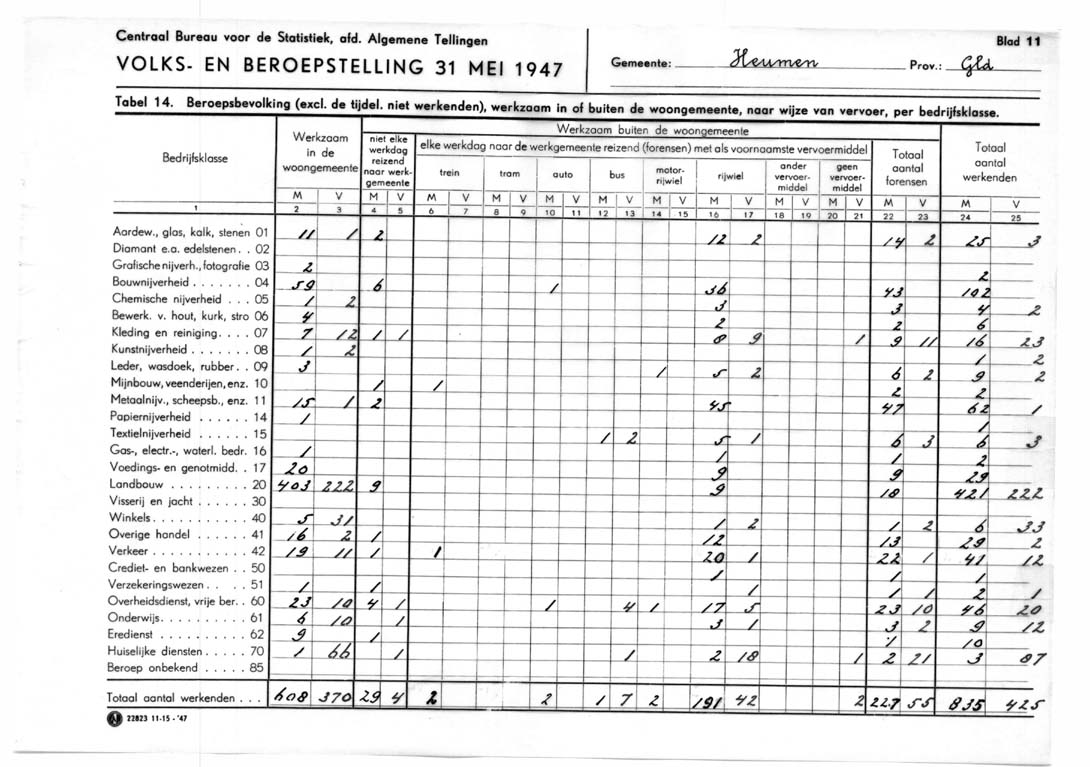 Centraal Bureau voor de Statistiek, afd. Algemene Tellingen
VOLKS- EN BEROEPSTELLING 31 MEI 1947
Gemeente: Heumen Prov.: Gld
Blad 11
Tabel 14. Beroepsbevolking (excl. de tijdel. niet werkenden), werkzaam in of buiten de woongemeente, naar wijze van vervoer, per bedrijfsklasse.
Bedrijfsklasse
Werkzaam in de woongemeente
Werkzaam buiten de woongemeente
niet elke werkdag reizend naar werk-gemeente
elke werkdag naar de werkgemeente reizend (forensen) met als voornaamste vervoermiddel
trein tram auto bus motor-rijwiel rijwiel ander vervoer-middel geen vervoer-middel
Totaal aantal forensen
Totaal aantal werkenden
M V M V M V M V M V M V M V M V M V M V M V M V
1 2 3 4 5 6 7 8 9 10 11 12 13 14 15 16 17 18 19 20 21 22 23 24 25
Aardew., glas, kalk, stenen 01 11 1 2 12 2 14 2 25 3
Diamant e.a. edelstenen . . 02
Grafische nijverh., fotografie 03 2 2
Bouwnijverheid . . . . . . . 04 59 6 1 36 43 102
Chemische nijverheid . . . 05 1 2 3 3 4 2
Bewerk. v. hout, kurk, stro 06 4 2 2 6
Kleding en reiniging. . . . 07 7 12 1 1 8 9 1 9 11 16 23
Kunstnijverheid . . . . . . . 08 1 2 1 2
Leder, wasdoek, rubber. . 09 3 1 5 2 6 2 9 2
Mijnbouw, veenderijen, enz. 10 1 1 2 2
Metaalnijv., scheepsb., enz. 11 15 1 2 45 47 62 1
Papiernijverheid . . . . . . 14 1 1
Textielnijverheid . . . . . . 15 1 2 5 1 6 3 6 3
Gas-, electr.-, waterl. bedr. 16 1 1 1 2
Voedings- en genotmidd. . 17 20 9 9 29
Landbouw . . . . . . . . . 20 403 222 9 9 18 421 222
Visserij en jacht . . . . . . 30
Winkels . . . . . . . . . . . 40 5 31 1 2 1 2 6 33
Overige handel . . . . . . 41 16 2 1 12 13 29 2
Verkeer . . . . . . . . . . . 42 19 11 1 1 20 1 22 1 41 12
Crediet- en bankwezen . . 50 1 1 1
Verzekeringswezen . . . . 51 1 1 1 1 1 2 1
Overheidsdienst, vrije ber. . 60 23 10 4 1 1 4 1 17 5 23 10 46 20
Onderwijs. . . . . . . . . . 61 6 10 1 3 1 3 2 9 12
Eredienst . . . . . . . . . . 62 9 1 1 10
Huiselijke diensten . . . . . 70 1 66 1 1 2 18 1 2 21 3 87
Beroep onbekend . . . . . 85
Totaal aantal werkenden . . . 608 370 29 4 2 2 1 7 2 191 42 2 227 55 835 425
22823 11-15 - '47